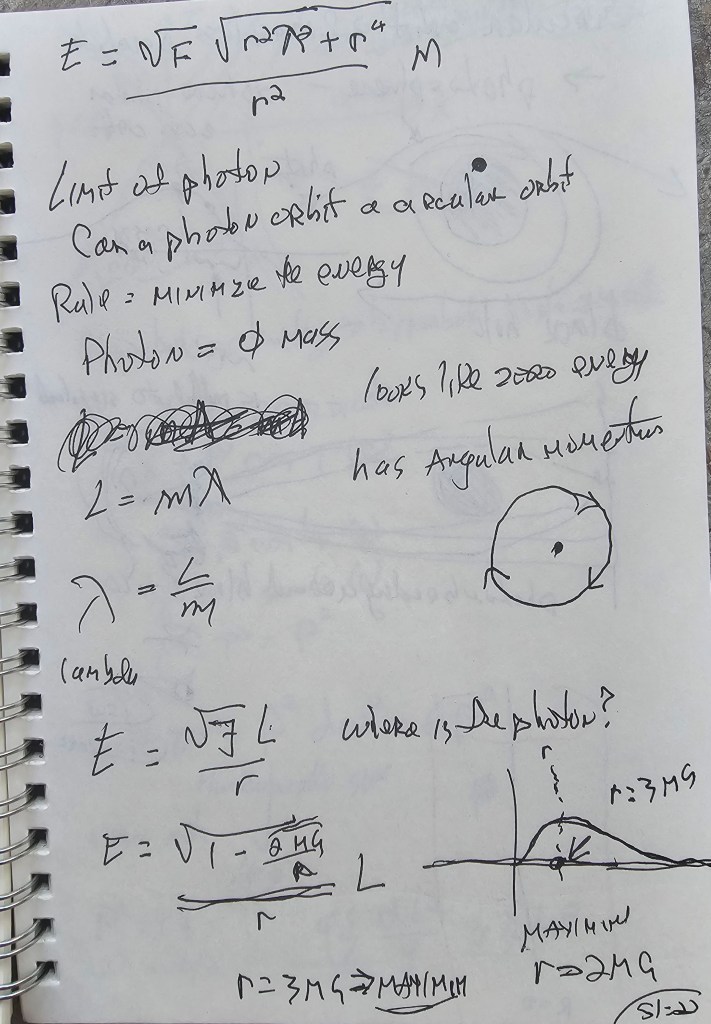 E = √F √r²λ² + r⁴ M
r²
Limit of photon
Can a photon orbit a circular orbit
Rule = MINIMIZE the energy
Photon = ϕ MASS
looks like zero energy
has Angular momentum
L = mλ
λ = L/m
lambda
E = √F L / r
where is the photon?
r
r=3MG
E = √1 - 2MG/R L
r
MAXIMUM
r=2MG
r=3MG ⇒ MAXIMUM